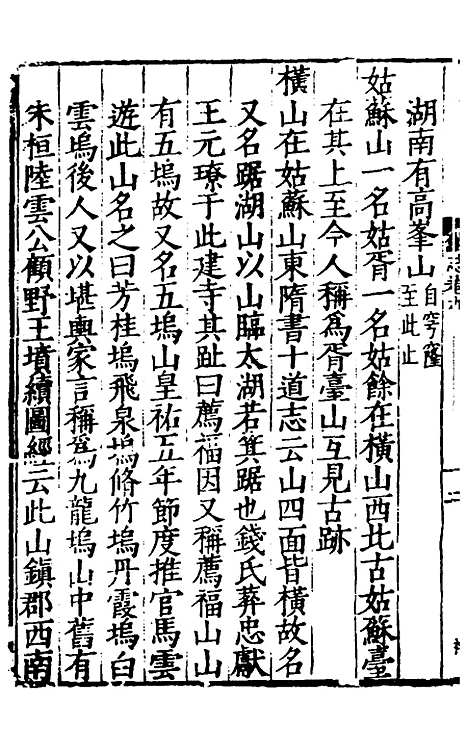 湖南有高峯山自穹窿至此止
姑蘇山一名姑胥一名姑餘在橫山西北古姑蘇臺
在其上至今人稱爲胥臺山互見古跡
橫山在姑蘇山東隋書十道志云山四面皆橫故名
又名踞湖山以山臨太湖若箕踞也錢氏葬忠獻
王元璙于此建寺其趾曰薦福因又稱薦福山山
有五塢故又名五塢山皇祐五年節度推官馬雲
遊此山名之曰芳桂塢飛泉塢脩竹塢丹霞塢白
雲塢後人又以堪輿家言稱爲九龍塢山中舊有
朱桓陸雲公顧野王墳續圖經云此山鎮郡西南